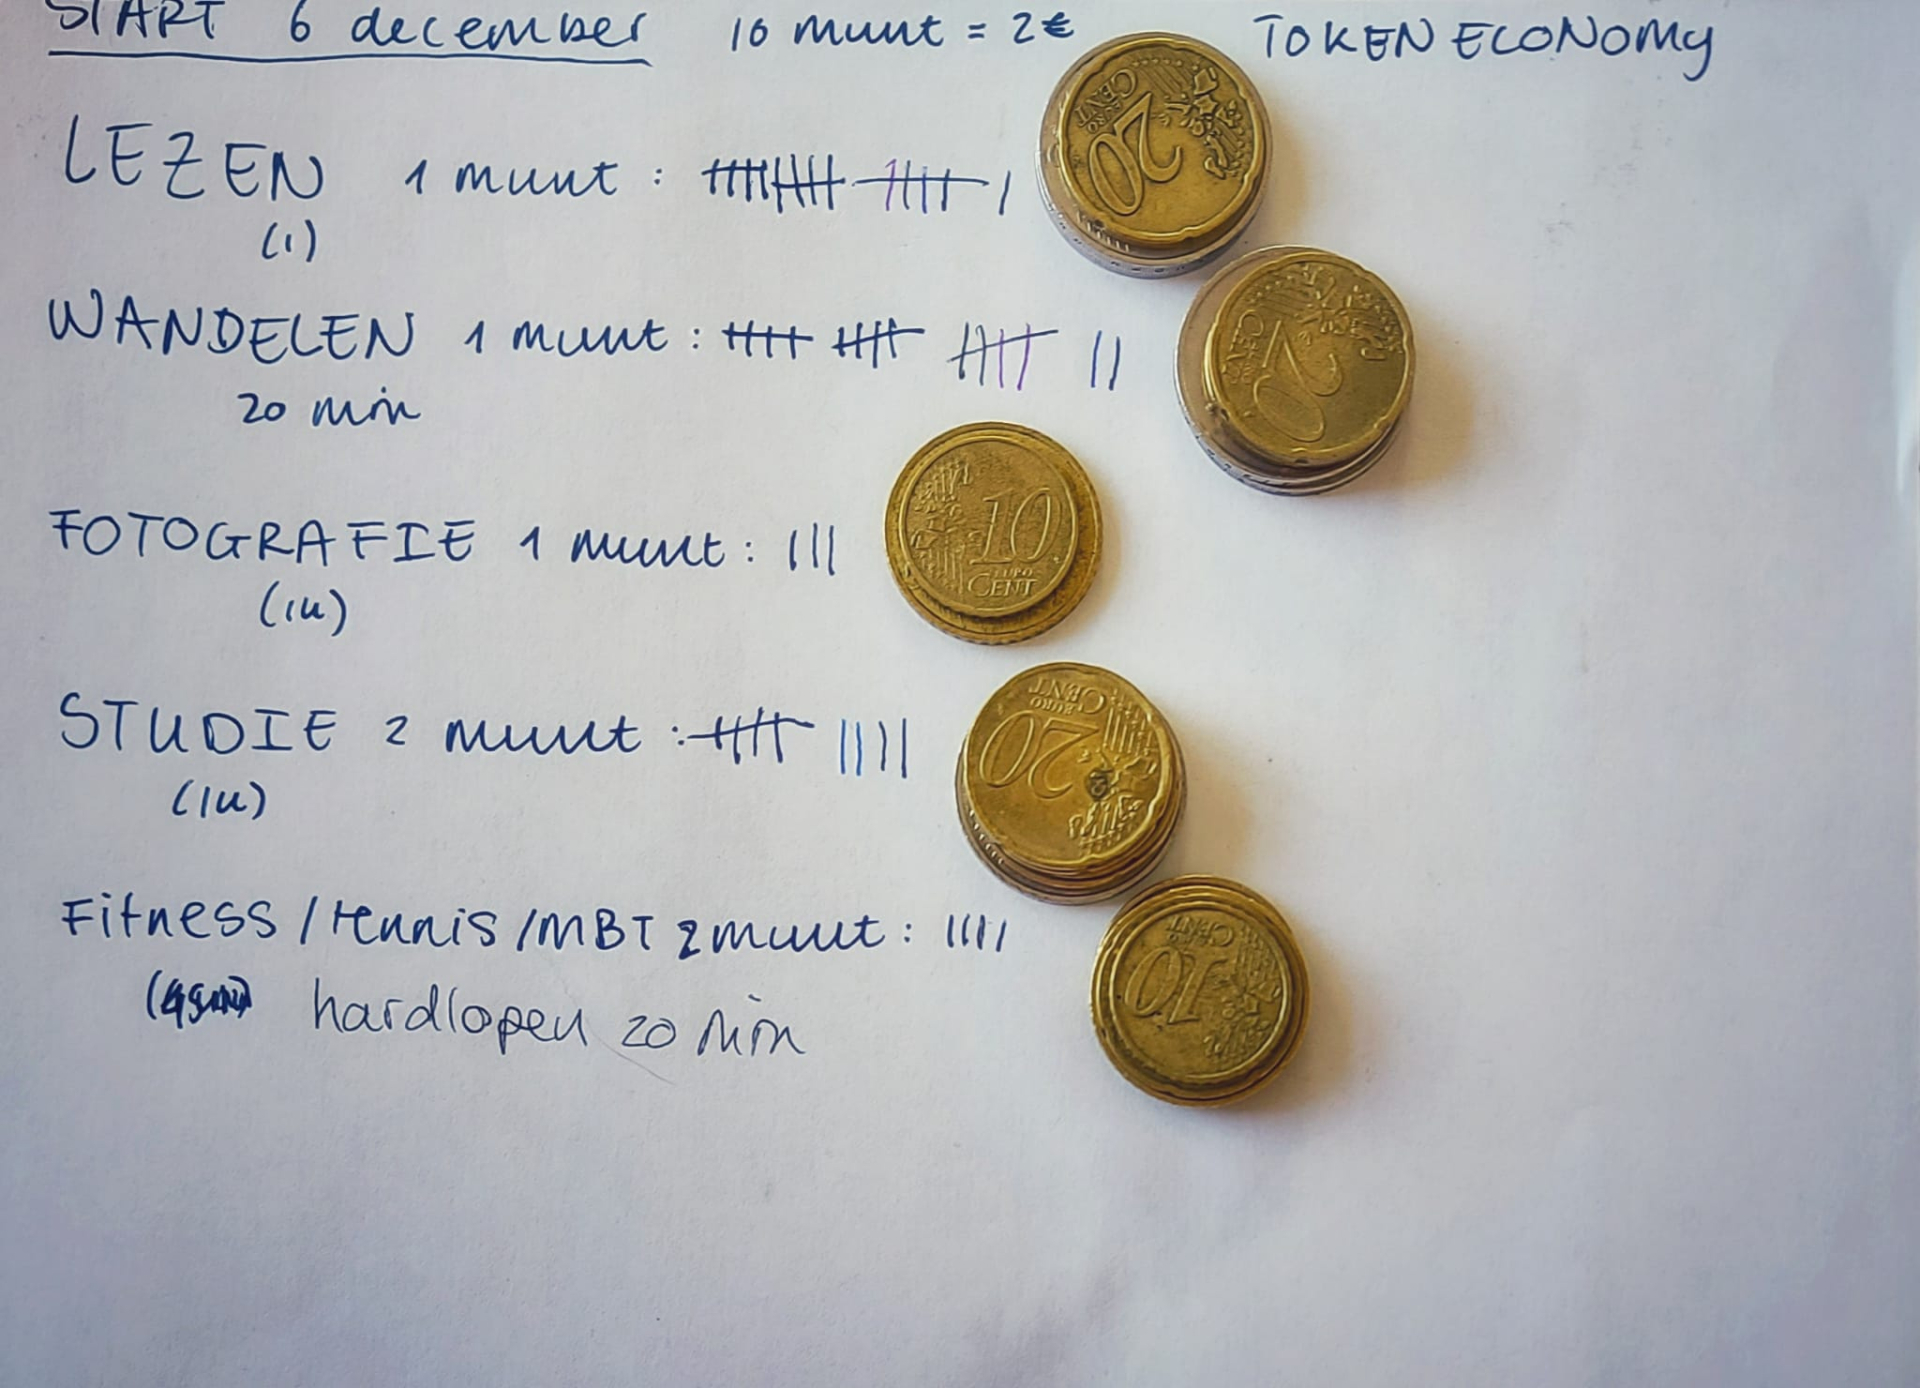 START 6 december 10 munt = 2€ TOKEN ECONOMY
LEZEN 1 munt :
(1)
WANDELEN 1 munt :
20 min
FOTOGRAFIE 1 munt :
(1u)
STUDIE 2 munt :
(1u)
Fitness / tennis / MBT 2 munt :
hardlopen 20 min
20 EURO CENT
20 EURO CENT
10 EURO CENT
20 EURO CENT
10 EURO CENT